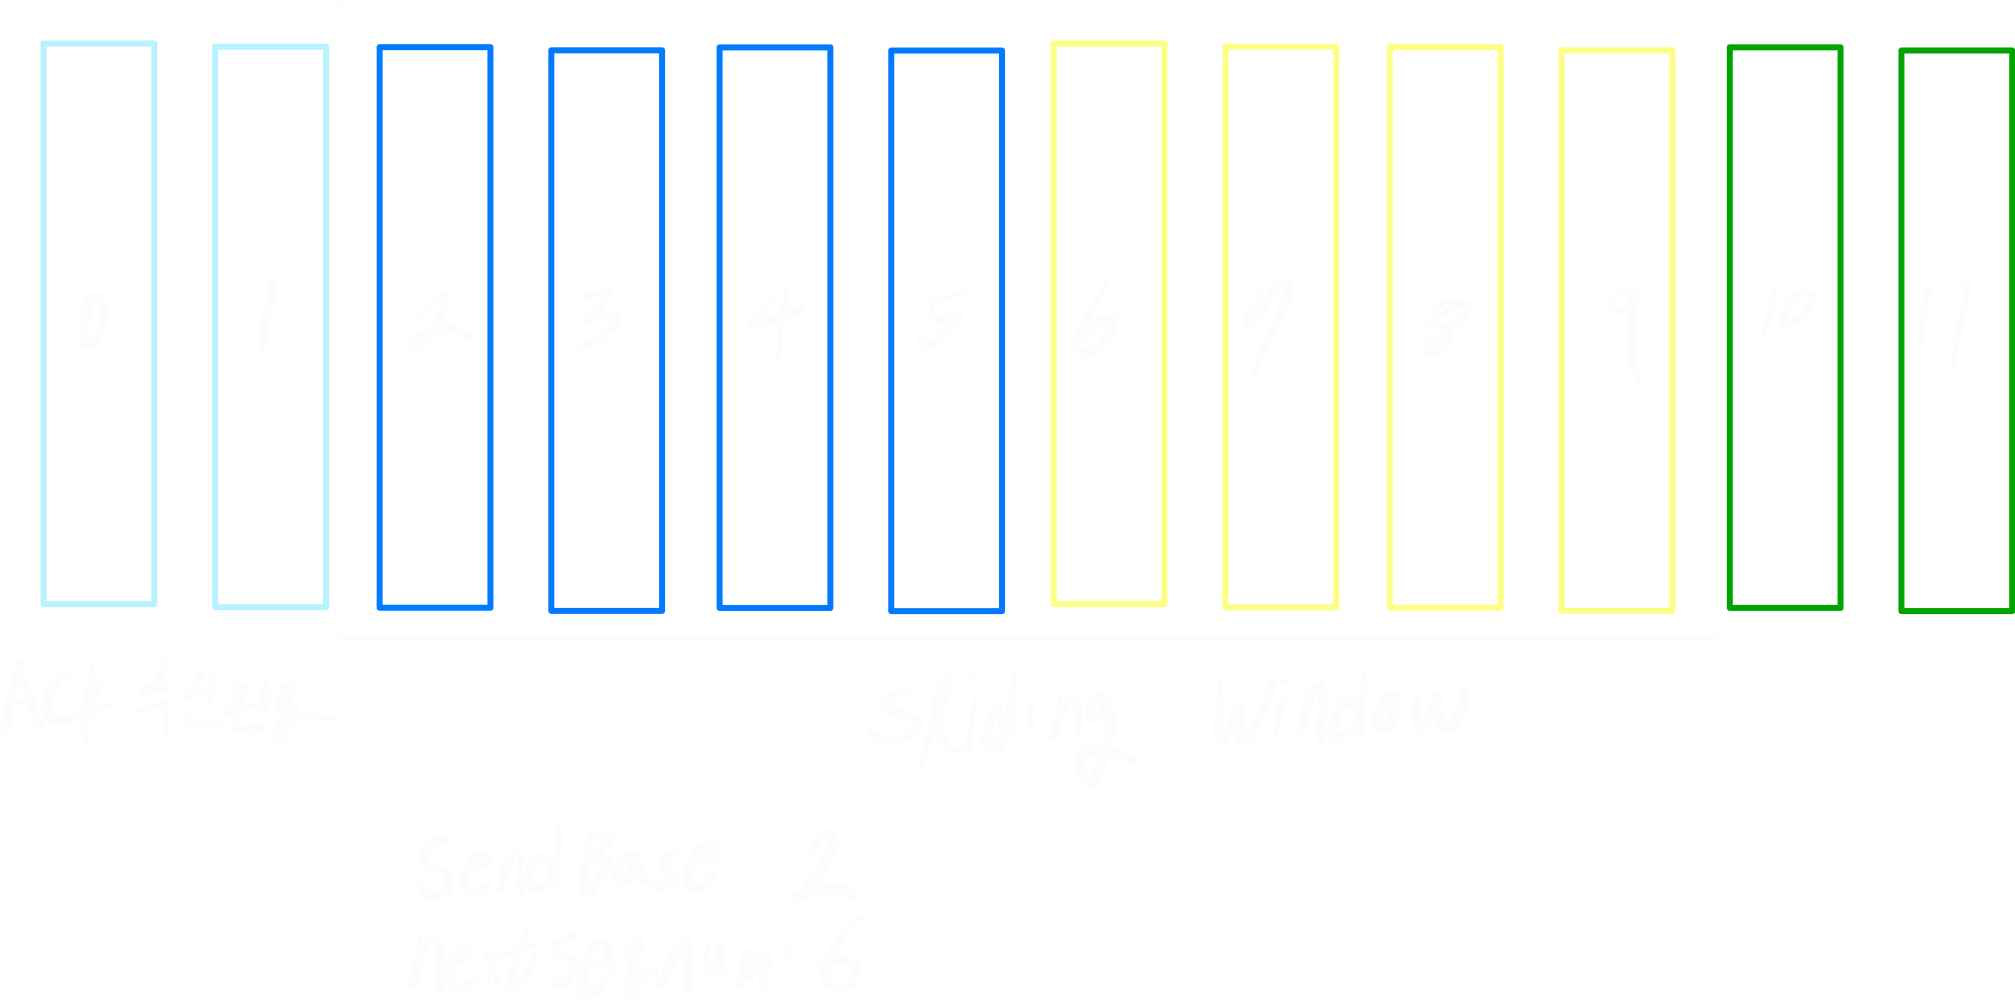 0 1 2 3 4 5 6 7 8 9 10 11
ACK 수신완료 Sliding Window
SendBase : 2
nextseqnum : 6